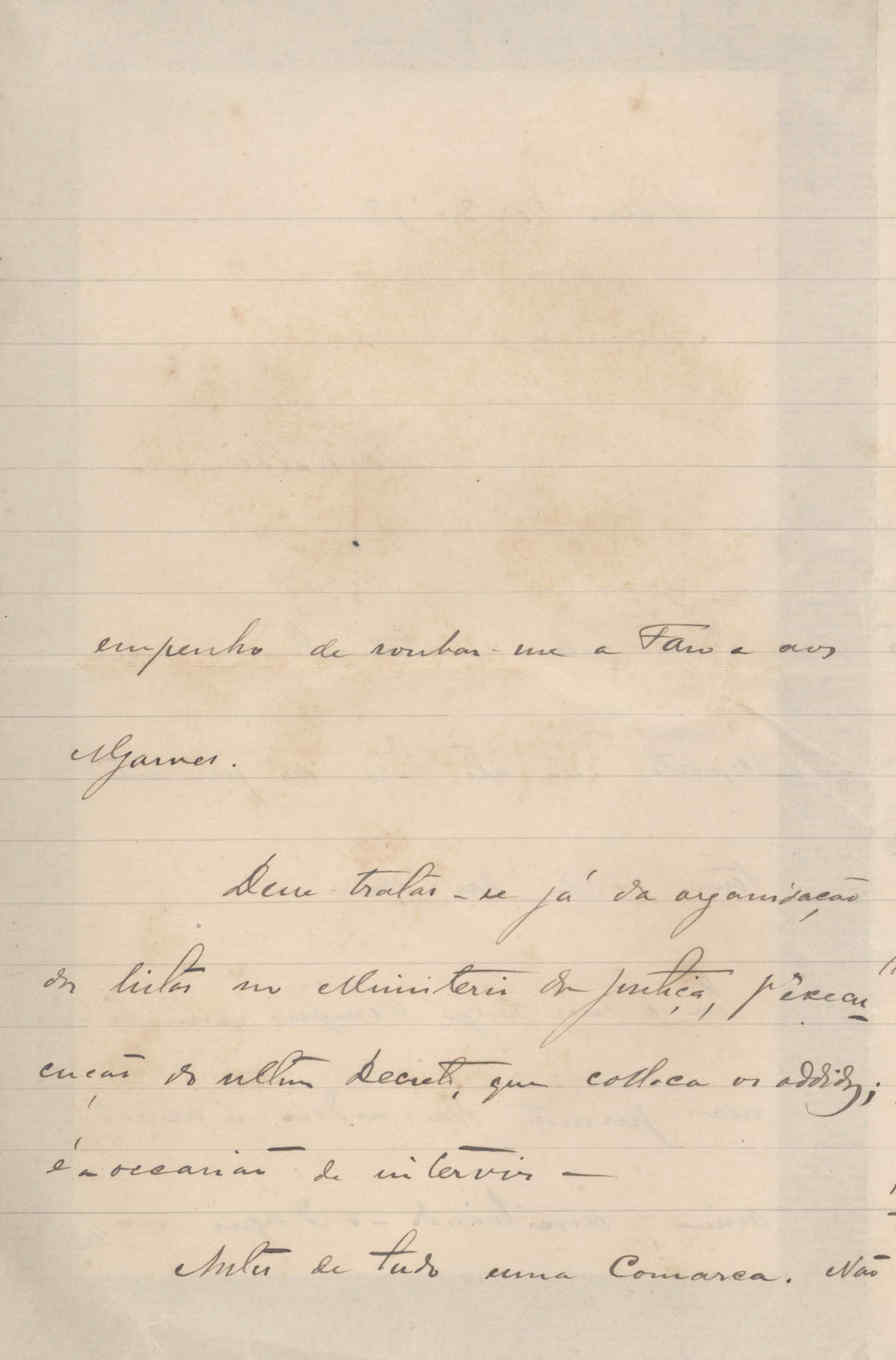 empenho de roubar-me a Faro e aos
Algarves.
Deve tratar-se já da organisação
das listas no Ministerio da Justiça, p.ª execu
cução do ultimo Decreto, que colloca os addidos;
é a occasião de intervir —
Antes de tudo uma Comarca. Não